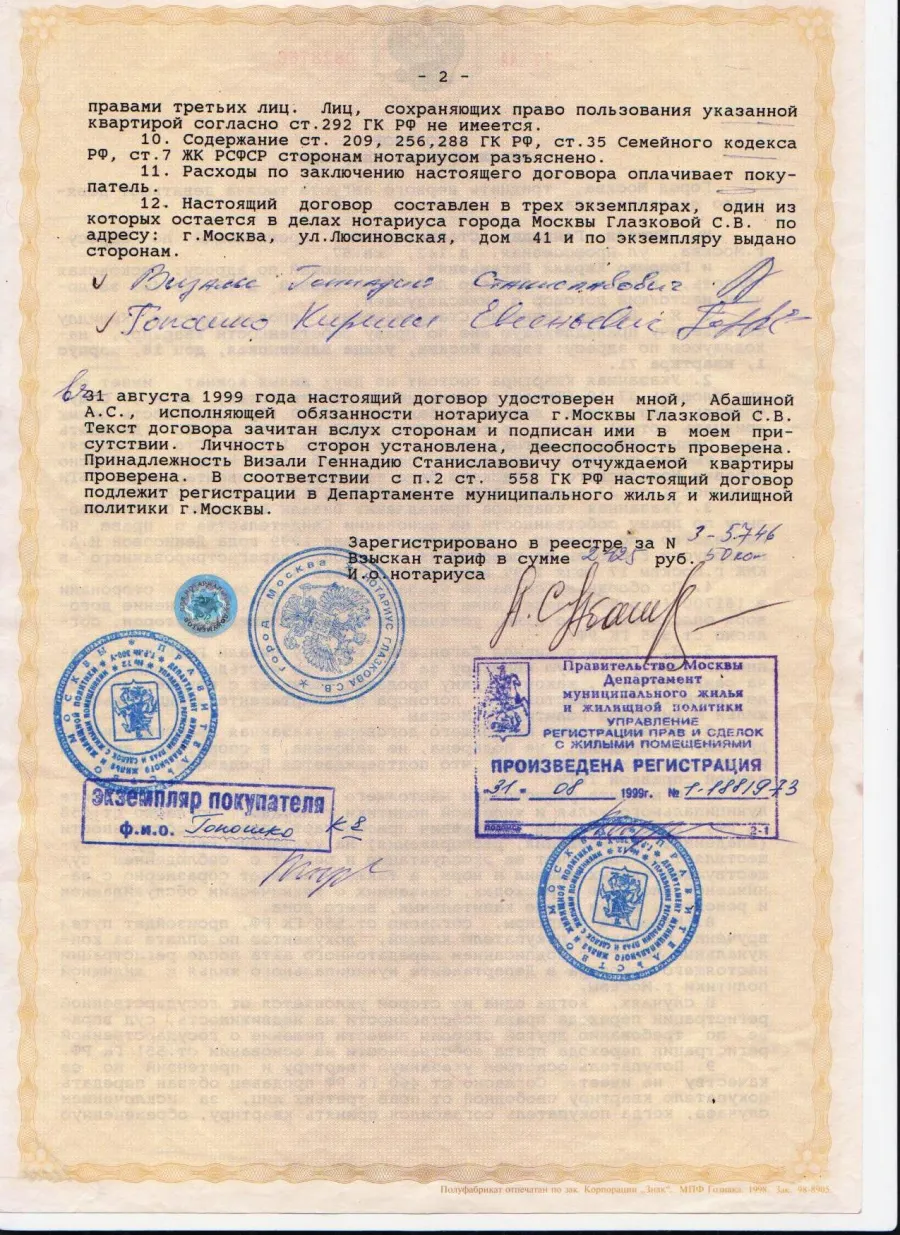 - 2 -
правами третьих лиц. Лиц, сохраняющих право пользования указанной
квартирой согласно ст.292 ГК РФ не имеется.
10. Содержание ст. 209, 256,288 ГК РФ, ст.35 Семейного кодекса
РФ, ст.7 ЖК РСФСР сторонам нотариусом разъяснено.
11. Расходы по заключению настоящего договора оплачивает поку-
патель.
12. Настоящий договор составлен в трех экземплярах, один из
которых остается в делах нотариуса города Москвы Глазковой С.В. по
адресу: г.Москва, ул.Люсиновская, дом 41 и по экземпляру выдано
сторонам.
Визали Геннадий Станиславович
Гопошко Кирилл Евгеньевич
31 августа 1999 года настоящий договор удостоверен мной, Абашиной
А.С., исполняющей обязанности нотариуса г.Москвы Глазковой С.В.
Текст договора зачитан вслух сторонам и подписан ими в моем при-
сутствии. Личность сторон установлена, дееспособность проверена.
Принадлежность Визали Геннадию Станиславовичу отчуждаемой квартиры
проверена. В соответствии с п.2 ст. 558 ГК РФ настоящий договор
подлежит регистрации в Департаменте муниципального жилья и жилищной
политики г.Москвы.
Зарегистрировано в реестре за N 3-5746
Взыскан тариф в сумме 2125 руб. 50 коп
И.о.нотариуса
город Москва * НОТАРИУС ГЛАЗКОВА С.В. *
Правительство Москвы
Департамент
муниципального жилья
и жилищной политики
УПРАВЛЕНИЕ
РЕГИСТРАЦИИ ПРАВ И СДЕЛОК
С ЖИЛЫМИ ПОМЕЩЕНИЯМИ
ПРОИЗВЕДЕНА РЕГИСТРАЦИЯ
31 - 08 1999г. № 1-1881973
подпись 2-1
ПРАВИТЕЛЬСТВО МОСКВЫ
ДЕПАРТАМЕНТ МУНИЦИПАЛЬНОГО ЖИЛЬЯ И ЖИЛИЩНОЙ ПОЛИТИКИ
УПРАВЛЕНИЕ РЕГИСТРАЦИИ ПРАВ И СДЕЛОК С ЖИЛЫМИ ПОМЕЩЕНИЯМИ
экземпляр покупателя
ф.и.о. Гопошко К Е
ПРАВИТЕЛЬСТВО МОСКВЫ
ДЕПАРТАМЕНТ МУНИЦИПАЛЬНОГО ЖИЛЬЯ И ЖИЛИЩНОЙ ПОЛИТИКИ
УПРАВЛЕНИЕ РЕГИСТРАЦИИ ПРАВ И СДЕЛОК С ЖИЛЫМИ ПОМЕЩЕНИЯМИ
Полуфабрикат отпечатан по зак. Корпорации „Знак". МПФ Гознака. 1998. Зак. 98-8905.